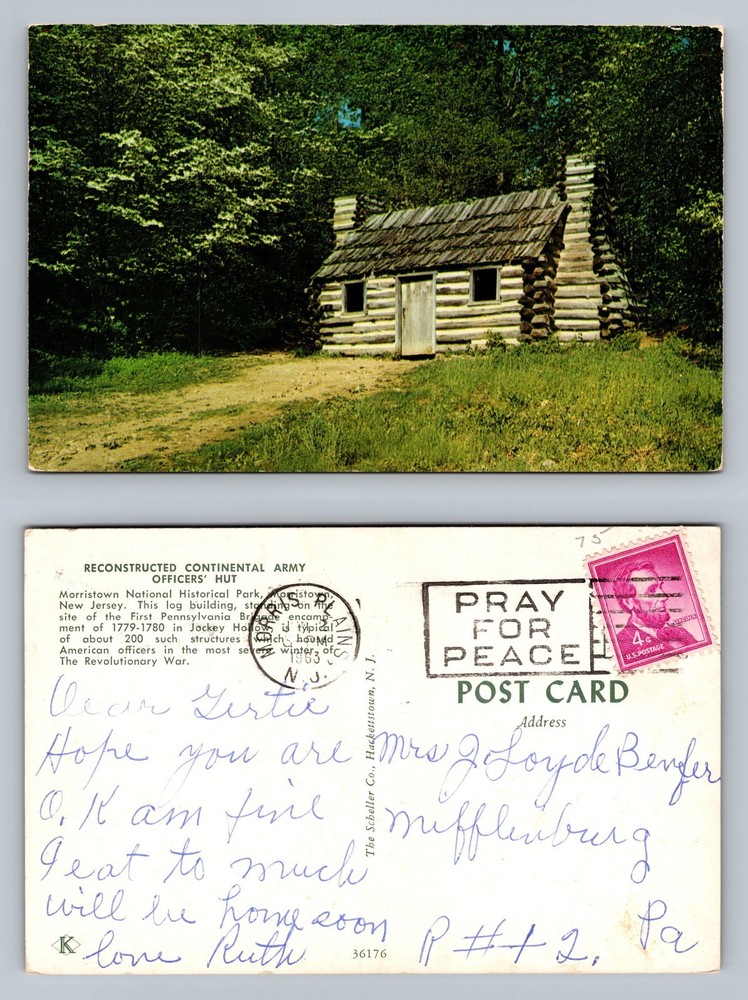 RECONSTRUCTED CONTINENTAL ARMY
OFFICERS' HUT
Morristown National Historical Park, Morristown,
New Jersey. This log building, standing on the
site of the First Pennsylvania Brigade encamp-
ment of 1779-1780 in Jockey Hollow is typical
of about 200 such structures which housed
American officers in the most severe winter of
The Revolutionary War.
MORRIS PLAINS
PM
1963
N. J.
PRAY
FOR
PEACE
75
4¢
U.S. POSTAGE
POST CARD
Address
The Scheller Co., Hackettstown, N. J.
Dear Gertie
Hope you are
O.K am fine
I eat to much
will be home soon
love Ruth
Mrs J Loyde
Mifflenburg
R # 2.
Pa
K
36176